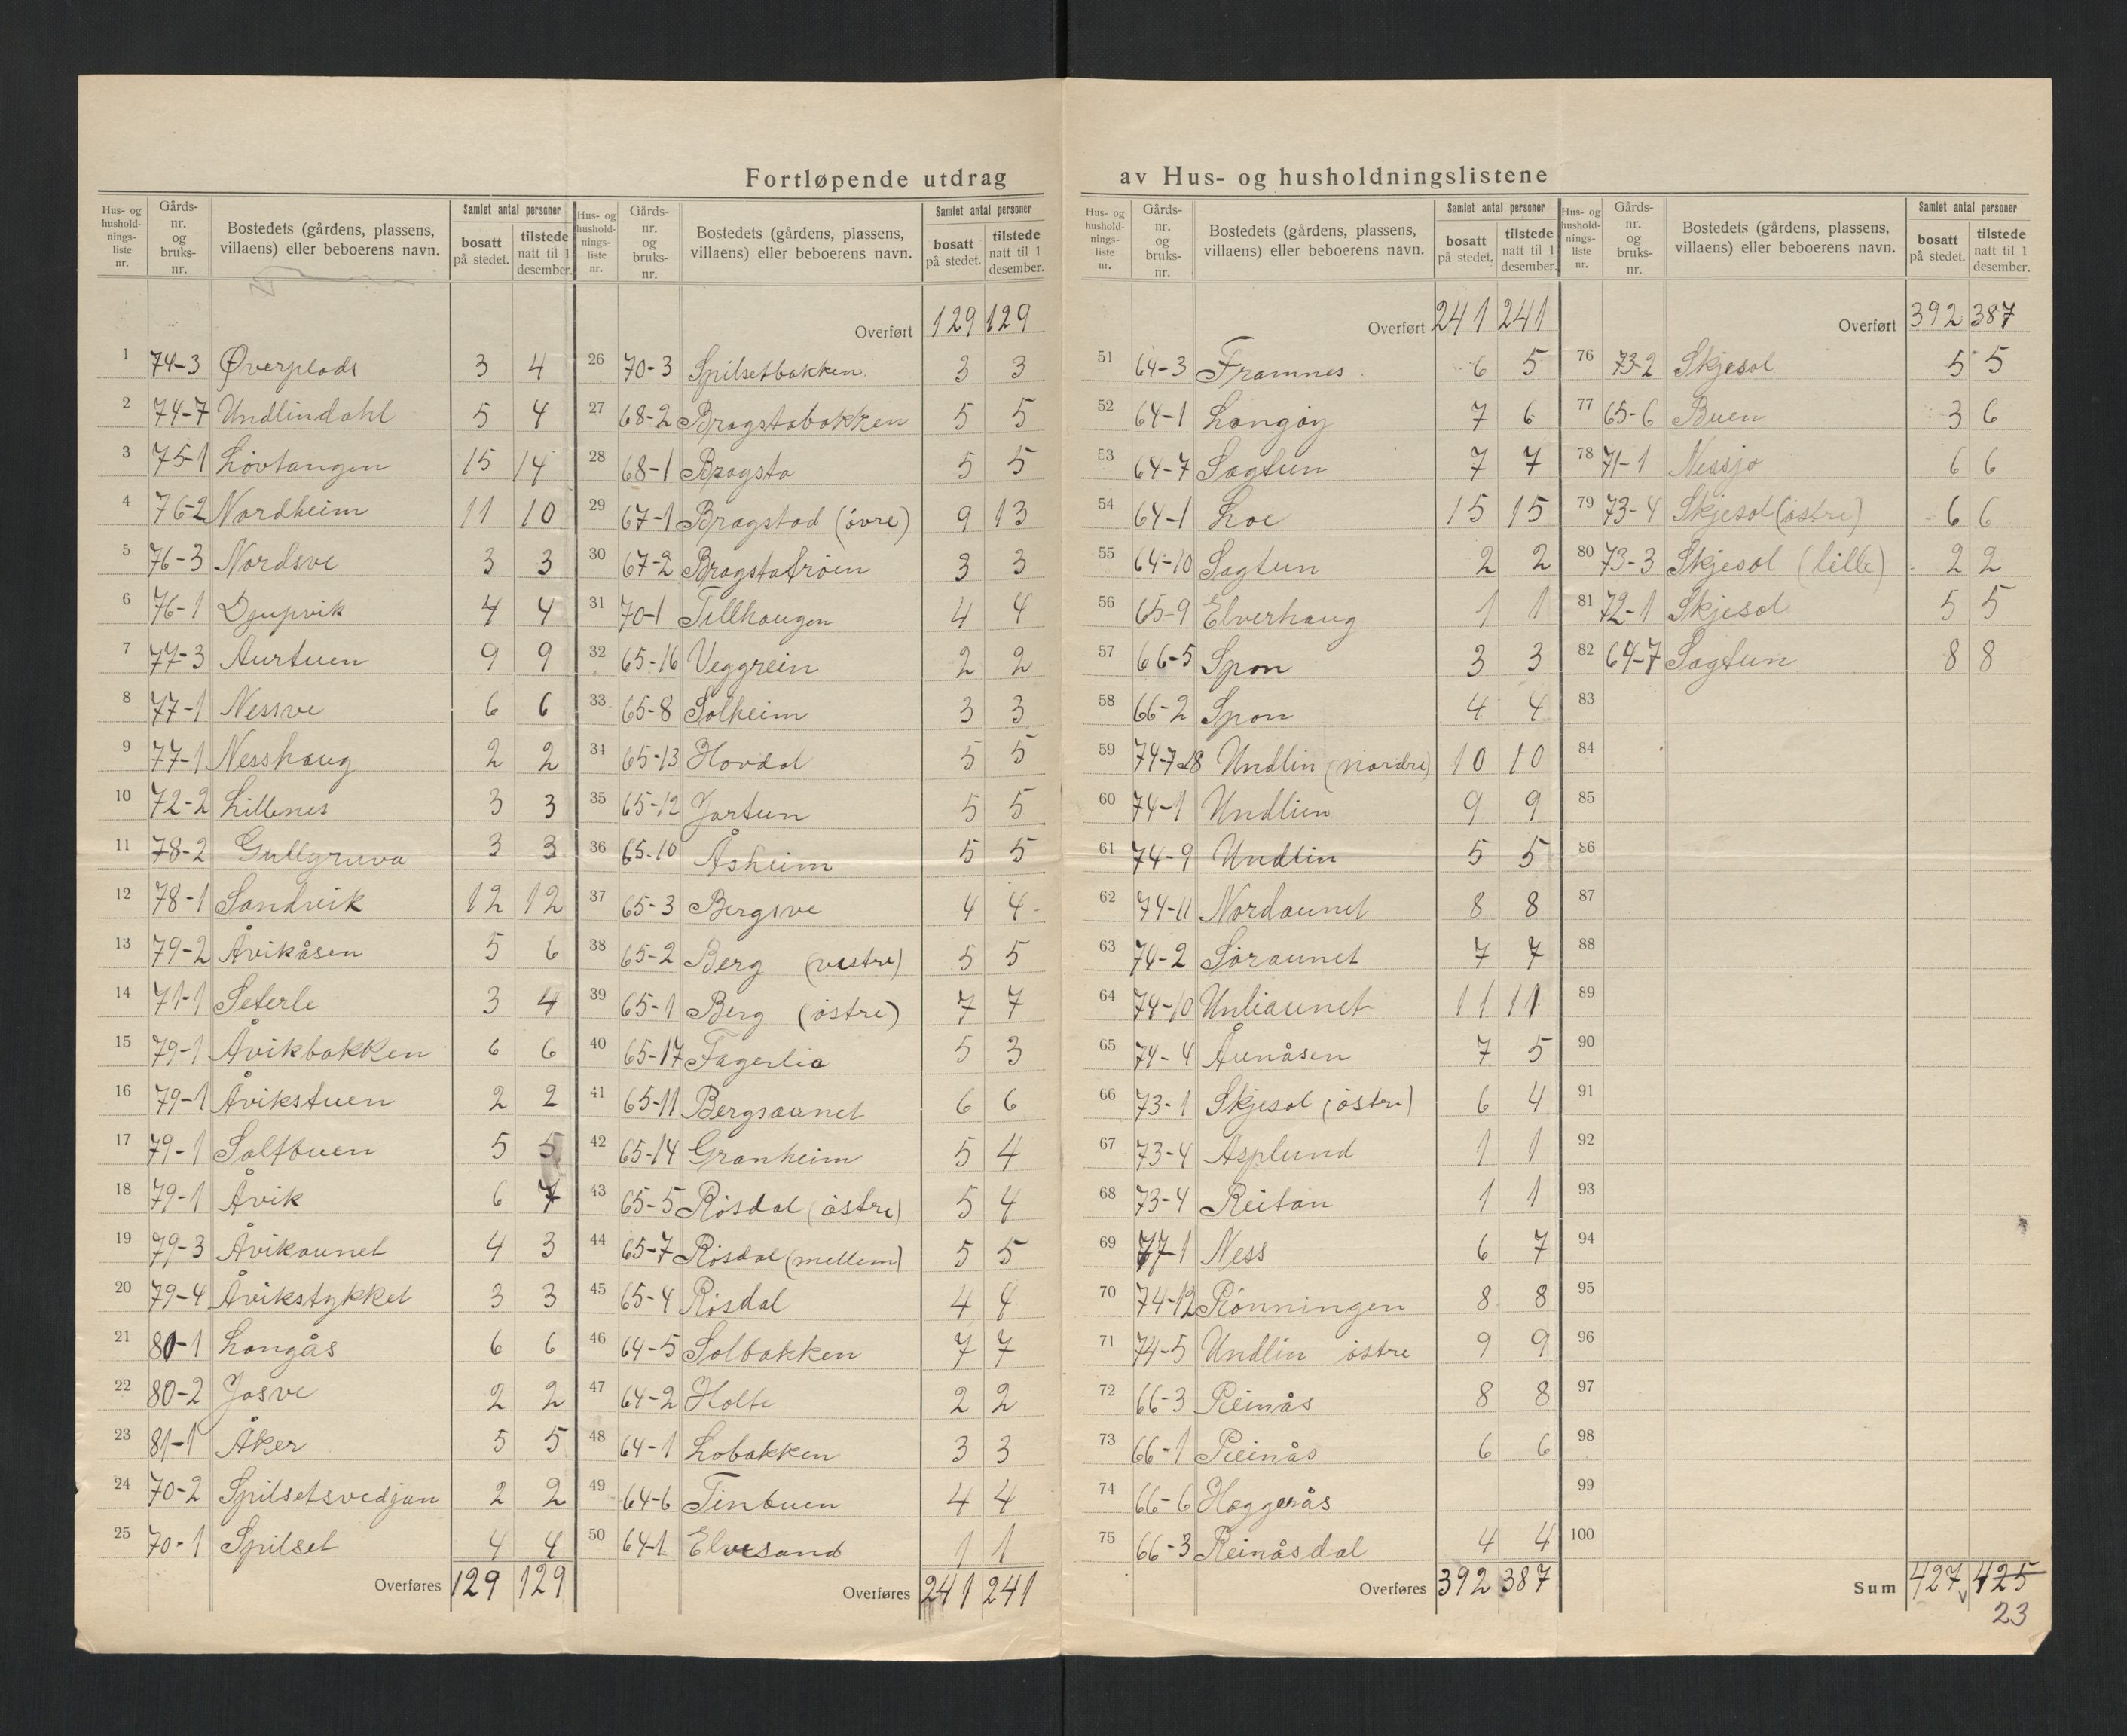 Fortløpende utdrag av Hus- og husholdningslistene
Hus- og hushold-nings-liste nr. Gårds-nr. og bruks-nr. Bostedets (gårdens, plassens, villaens) eller beboerens navn. Samlet antal personer bosatt på stedet. tilstede natt til 1 desember.
1 74-3 Øverplads 3 4
2 74-7 Undlindahl 5 4
3 75-1 Løvtangen 15 14
4 76-2 Nordheim 11 10
5 76-3 Nordsve 3 3
6 76-1 Djupvik 4 4
7 77-3 Aurtuen 9 9
8 77-1 Nessve 6 6
9 77-1 Nesshaug 2 2
10 72-2 Lillenes 3 3
11 78-2 Gullgruva 3 3
12 78-1 Sandvik 12 12
13 79-2 Åvikåsen 5 6
14 71-1 Seterle 3 4
15 79-1 Åvikbakken 6 6
16 79-1 Åvikstuen 2 2
17 79-1 Saltbuen 5 5
18 79-1 Åvik 6 7
19 79-3 Åvikaunet 4 3
20 79-4 Åvikstykket 3 3
21 80-1 Langås 6 6
22 80-2 Josve 2 2
23 81-1 Åker 5 5
24 70-2 Spilsetsvedjan 2 2
25 70-1 Spilset 4 4
Overføres 129 129
Hus- og hushold-nings-liste nr. Gårds-nr. og bruks-nr. Bostedets (gårdens, plassens, villaens) eller beboerens navn. Samlet antal personer bosatt på stedet. tilstede natt til 1 desember.
Overført 129 129
26 70-3 Spilsetbakken 3 3
27 68-2 Bragstabakken 5 5
28 68-1 Bragsta 5 5
29 67-1 Bragstad (övre) 9 13
30 67-2 Bragstatröen 3 3
31 70-1 Tillhaugen 4 4
32 65-16 Veggrein 2 2
33 65-8 Solheim 3 3
34 65-13 Hovdal 5 5
35 65-12 Jartun 5 5
36 65-10 Åsheim 5 5
37 65-3 Bergsve 4 4
38 65-2 Berg (vestre) 5 5
39 65-1 Berg (östre) 7 7
40 65-17 Fagerlia 5 3
41 65-11 Bergsaunet 6 6
42 65-14 Granheim 5 4
43 65-5 Rösdal (östre) 5 4
44 65-7 Rösdal (mellem) 5 5
45 65-4 Rösdal 4 4
46 64-5 Solbakken 7 7
47 64-2 Holte 2 2
48 64-1 Lobakken 3 3
49 64-6 Tinbuen 4 4
50 64-1 Elvesand 1 1
Overføres 241 241
Hus- og hushold-nings-liste nr. Gårds-nr. og bruks-nr. Bostedets (gårdens, plassens, villaens) eller beboerens navn. Samlet antal personer bosatt på stedet. tilstede natt til 1 desember.
Overført 241 241
51 64-3 Framnes 6 5
52 64-1 Langöy 7 6
53 64-7 Sagtun 7 7
54 64-1 Loe 15 15
55 64-10 Sagtun 2 2
56 65-9 Elverhaug 1 1
57 66-5 Spon 3 3
58 66-2 Spon 4 4
59 74-7 Undlin (nordre) 10 10
60 74-1 Undlien 9 9
61 74-9 Undlin 5 5
62 74-11 Nordaunet 8 8
63 74-2 Söraunet 7 7
64 74-10 Unliaunet 11 11
65 74-4 Aunåsen 7 5
66 73-1 Skjesol (östre) 6 4
67 73-4 Asplund 1 1
68 73-4 Reitan 1 1
69 77-1 Ness 6 7
70 74-12 Rönningen 8 8
71 74-5 Undlin östre 9 9
72 66-3 Reinås 8 8
73 66-1 Reinås 6 6
74 66-6 Haggerås
75 66-3 Reinåsdal 4 4
Overføres 392 387
Hus- og hushold-nings-liste nr. Gårds-nr. og bruks-nr. Bostedets (gårdens, plassens, villaens) eller beboerens navn. Samlet antal personer bosatt på stedet. tilstede natt til 1 desember.
Overført 392 387
76 73-2 Skjesol 5 5
77 65-6 Buen 3 6
78 71-1 Nessjö 6 6
79 73-4 Skjesol (östre) 6 6
80 73-3 Skjesol (lille) 2 2
81 72-1 Skjesol 5 5
82 64-7 Sagtun 8 8
83
84
85
86
87
88
89
90
91
92
93
94
95
96
97
98
99
100
Sum 427 425
23